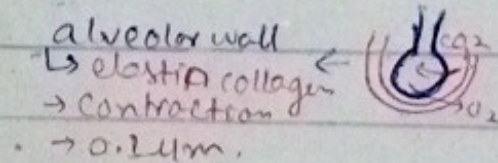 alveolar wall
↳ elastin collagen ←
→ contraction
. → 0.1µm.
CO2
O2